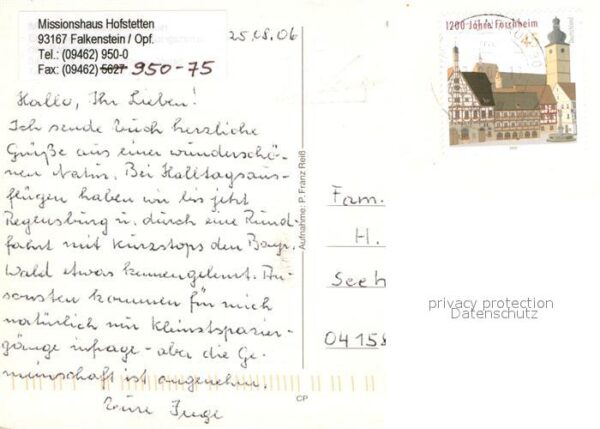 Missionshaus Hofstetten
93167 Falkenstein / Opf.
Tel.: (09462) 950-0
Fax: (09462) 5627 950-75
25.08.06
1200 Jahre Forchheim
Hallo, Ihr Lieben!
Ich sende Euch herzliche
Grüße aus einer wunderschö-
nen Natur. Bei Halbtagsaus-
flügen haben wir bis jetzt
Regensburg u. durch eine Rund-
fahrt mit Kurzstops den Bayr.
Wald etwas kennengelernt. An-
sonsten kommen für mich
natürlich nur Kleinstspazier-
gänge infrage - aber die Ge-
meinschaft ist angenehm.
Eure Inge
Aufnahme: P. Franz Reiß
CP
Fam.
H.
Seeh
04158
privacy protection
Datenschutz